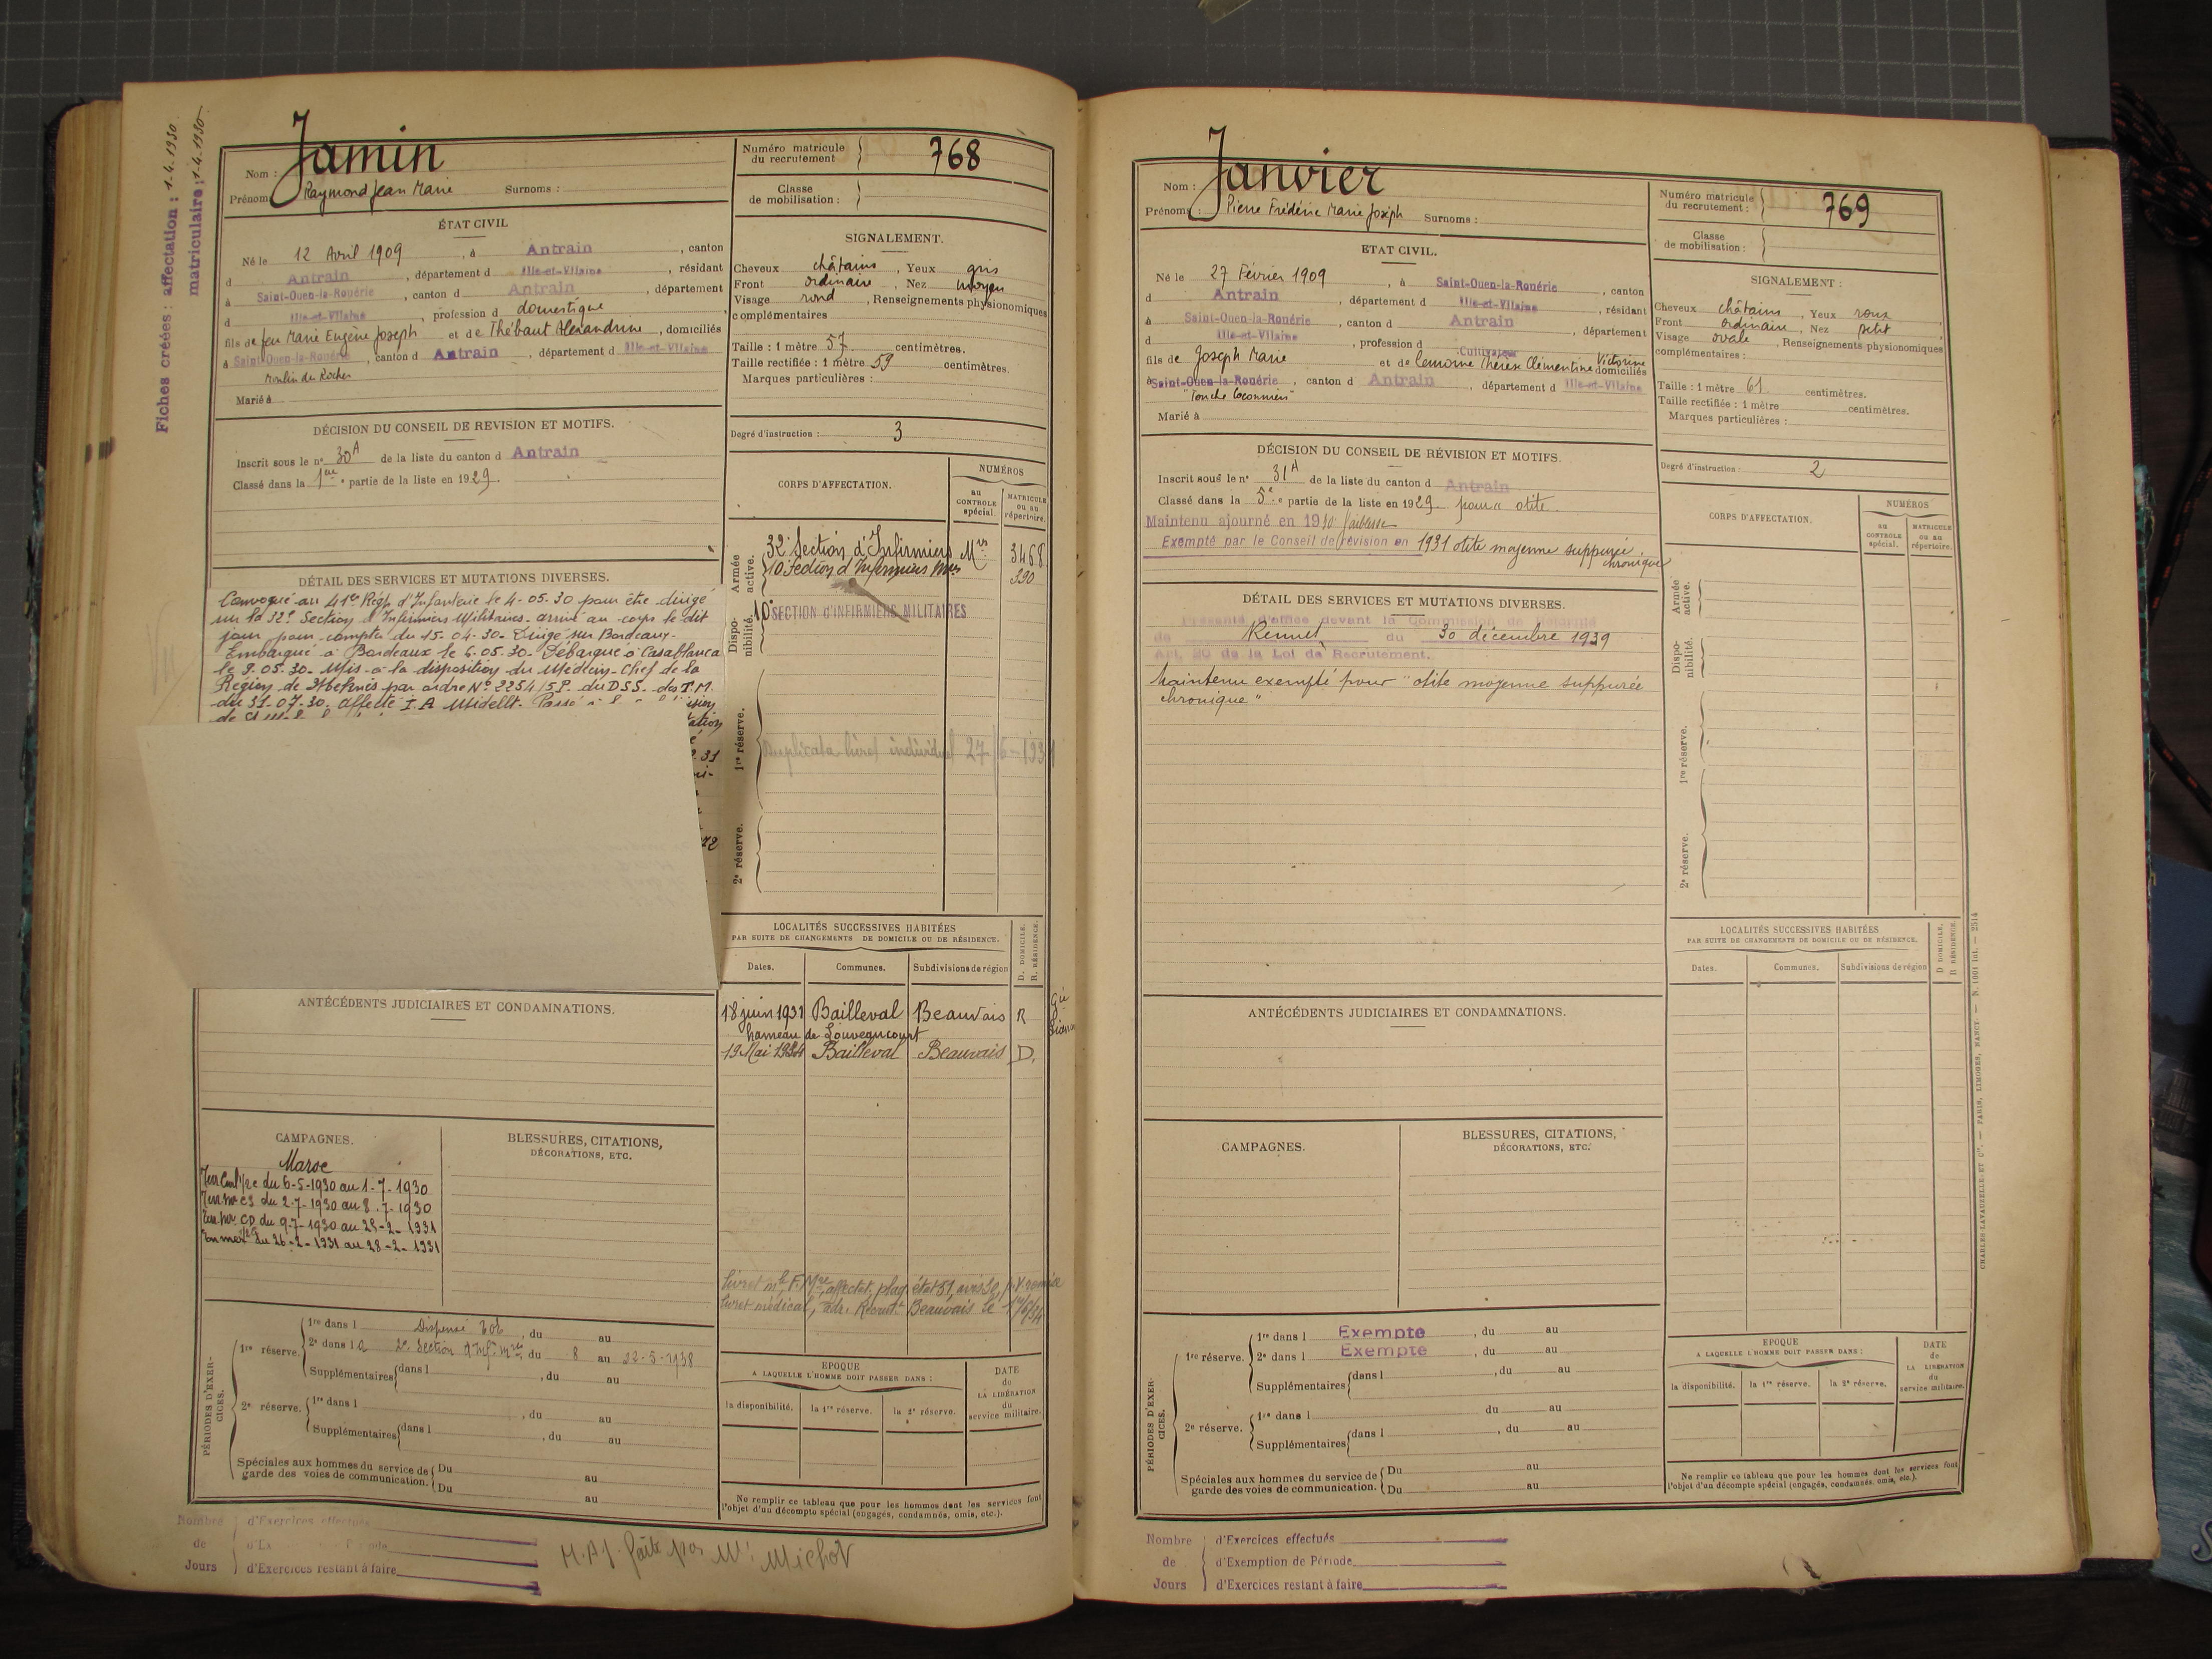 Fiches créées : affectation : 1-4-1930
matriculaire : 1-4-1930
Jamin
Nom :
Prénom Raymond Jean Marie Surnoms :
Numéro matricule du recrutement 768
Classe de mobilisation :
ÉTAT CIVIL
Né le 12 Avril 1909, à Antrain, canton
d Antrain, département d Ille-et-Vilaine, résidant
à Saint-Ouen-la-Rouërie, canton d Antrain, département
d Ille-et-Vilaine, profession d domestique
fils de feu Marie Eugène Joseph et de Thébaut Alexandrine, domiciliés
à Saint-Ouen-la-Rouërie, canton d Antrain, département d Ille-et-Vilaine
Moulin du Rocher
Marié à
SIGNALEMENT.
Cheveux châtains, Yeux gris
Front ordinaire, Nez moyen
Visage rond, Renseignements physionomiques
complémentaires
Taille : 1 mètre 57 centimètres.
Taille rectifiée : 1 mètre 59 centimètres.
Marques particulières :
Degré d'instruction : 3
DÉCISION DU CONSEIL DE REVISION ET MOTIFS.
Inscrit sous le n° 30A de la liste du canton d Antrain
Classé dans la 1ère partie de la liste en 1929.
CORPS D'AFFECTATION.
NUMÉROS
au CONTROLE spécial.
MATRICULE ou au répertoire.
Armée active.
32e Section d'Infirmiers Mres 3468
10 Section d'Infirmiers Mres 390
Disponibilité.
10e SECTION d'INFIRMIERS MILITAIRES
1re réserve.
Duplicata livret individuel 27-6-1931
2e réserve.
DÉTAIL DES SERVICES ET MUTATIONS DIVERSES.
Convoqué au 41e Régt d'Infanterie le 4-05-30 pour être dirigé
sur la 32e Section d'Infirmiers Militaires - arrivé au corps le dit
jour pour compter du 15-04-30 - Dirigé sur Bordeaux -
Embarqué à Bordeaux le 6-05-30 - Débarqué à Casablanca
le 9-05-30 - Mis à la disposition du Médecin-Chef de la
Région de Meknès par ordre N° 2254/5P. du DSS. des T.M.
du 31-07-30. Affecté I.A Midelt. Passé
LOCALITÉS SUCCESSIVES HABITÉES
PAR SUITE DE CHANGEMENTS DE DOMICILE OU DE RÉSIDENCE.
Dates. Communes. Subdivisions de région
D. DOMICILE. R. RÉSIDENCE.
18 juin 1931 Bailleval Beauvais R
hameau de Louvegncourt
19 Mai 1934 Bailleval Beauvais D.
ANTÉCÉDENTS JUDICIAIRES ET CONDAMNATIONS.
CAMPAGNES.
Maroc
du 6-5-1930 au 1-7-1930
du 2-7-1930 au 8-7-1930
CD du 9-7-1930 au 25-2-1931
du 26-2-1931 au 28-2-1931
BLESSURES, CITATIONS,
DÉCORATIONS, ETC.
livret médical, adr. Recrut. Beauvais le
PÉRIODES D'EXERCICES.
1re réserve.
1re dans l Dispensé, du au
2e dans la Section d'Inf. Mres, du 8 au 22-5-1938
Supplémentaires dans l, du au
2e réserve.
1re dans l, du au
Supplémentaires dans l, du au
Spéciales aux hommes du service de Du au
garde des voies de communication. Du au
EPOQUE
A LAQUELLE L'HOMME DOIT PASSER DANS :
la disponibilité. la 1re réserve. la 2e réserve.
DATE de LA LIBÉRATION du service militaire.
Ne remplir ce tableau que pour les hommes dont les services font
l'objet d'un décompte spécial (engagés, condamnés, omis, etc.).
Nombre de Jours
d'Exercices effectués
d'Exercices restant à faire
H.A.J. faite par Mr Michot
Janvier
Nom :
Prénoms : Pierre Frédéric Marie Joseph Surnoms :
Numéro matricule du recrutement : 769
Classe de mobilisation :
ETAT CIVIL.
Né le 27 Février 1909, à Saint-Ouen-la-Rouërie, canton
d Antrain, département d Ille-et-Vilaine, résidant
à Saint-Ouen-la-Rouërie, canton d Antrain, département
d Ille-et-Vilaine, profession d Cultivateur
fils de Joseph Marie et de Lemoine Thérèse Clémentine Victorine domiciliés
à Saint-Ouen-la-Rouërie, canton d Antrain, département d Ille-et-Vilaine
Marié à
SIGNALEMENT :
Cheveux châtains, Yeux roux
Front ordinaire, Nez petit
Visage ovale, Renseignements physionomiques
complémentaires :
Taille : 1 mètre 61 centimètres.
Taille rectifiée : 1 mètre centimètres.
Marques particulières :
Degré d'instruction : 2
DÉCISION DU CONSEIL DE RÉVISION ET MOTIFS.
Inscrit sous le n° 31A de la liste du canton d Antrain
Classé dans la 5e partie de la liste en 1929 pour otite
Maintenu ajourné en 1930 faiblesse
Exempté par le Conseil de révision en 1931 otite moyenne suppurée
chronique
CORPS D'AFFECTATION.
NUMÉROS
au CONTROLE spécial.
MATRICULE ou au répertoire.
Armée active.
Disponibilité.
1re réserve.
2e réserve.
DÉTAIL DES SERVICES ET MUTATIONS DIVERSES.
Présenté d'office devant la Commission de Réforme
de Rennes du 30 décembre 1939
Art. 20 de la Loi de Recrutement.
Maintenu exempté pour "otite moyenne suppurée
chronique"
LOCALITÉS SUCCESSIVES HABITÉES
PAR SUITE DE CHANGEMENTS DE DOMICILE OU DE RÉSIDENCE.
Dates. Communes. Subdivisions de région
D DOMICILE, R RÉSIDENCE
ANTÉCÉDENTS JUDICIAIRES ET CONDAMNATIONS.
CAMPAGNES.
BLESSURES, CITATIONS,
DÉCORATIONS, ETC.
PÉRIODES D'EXERCICES.
1re réserve.
1re dans l Exempté, du au
2e dans l Exempté, du au
Supplémentaires dans l, du au
2e réserve.
1re dans l du au
Supplémentaires dans l, du au
Spéciales aux hommes du service de Du au
garde des voies de communication. Du au
EPOQUE
A LAQUELLE L'HOMME DOIT PASSER DANS :
la disponibilité. la 1re réserve. la 2e réserve.
DATE de LA LIBÉRATION du service militaire.
Ne remplir ce tableau que pour les hommes dont les services font
l'objet d'un décompte spécial (engagés, condamnés, omis, etc.).
Nombre de Jours
d'Exercices effectués
d'Exemption de Période
d'Exercices restant à faire
CHARLES-LAVAUZELLE ET Cie. — PARIS, LIMOGES, NANCY. — N. 1001 int. — 2514